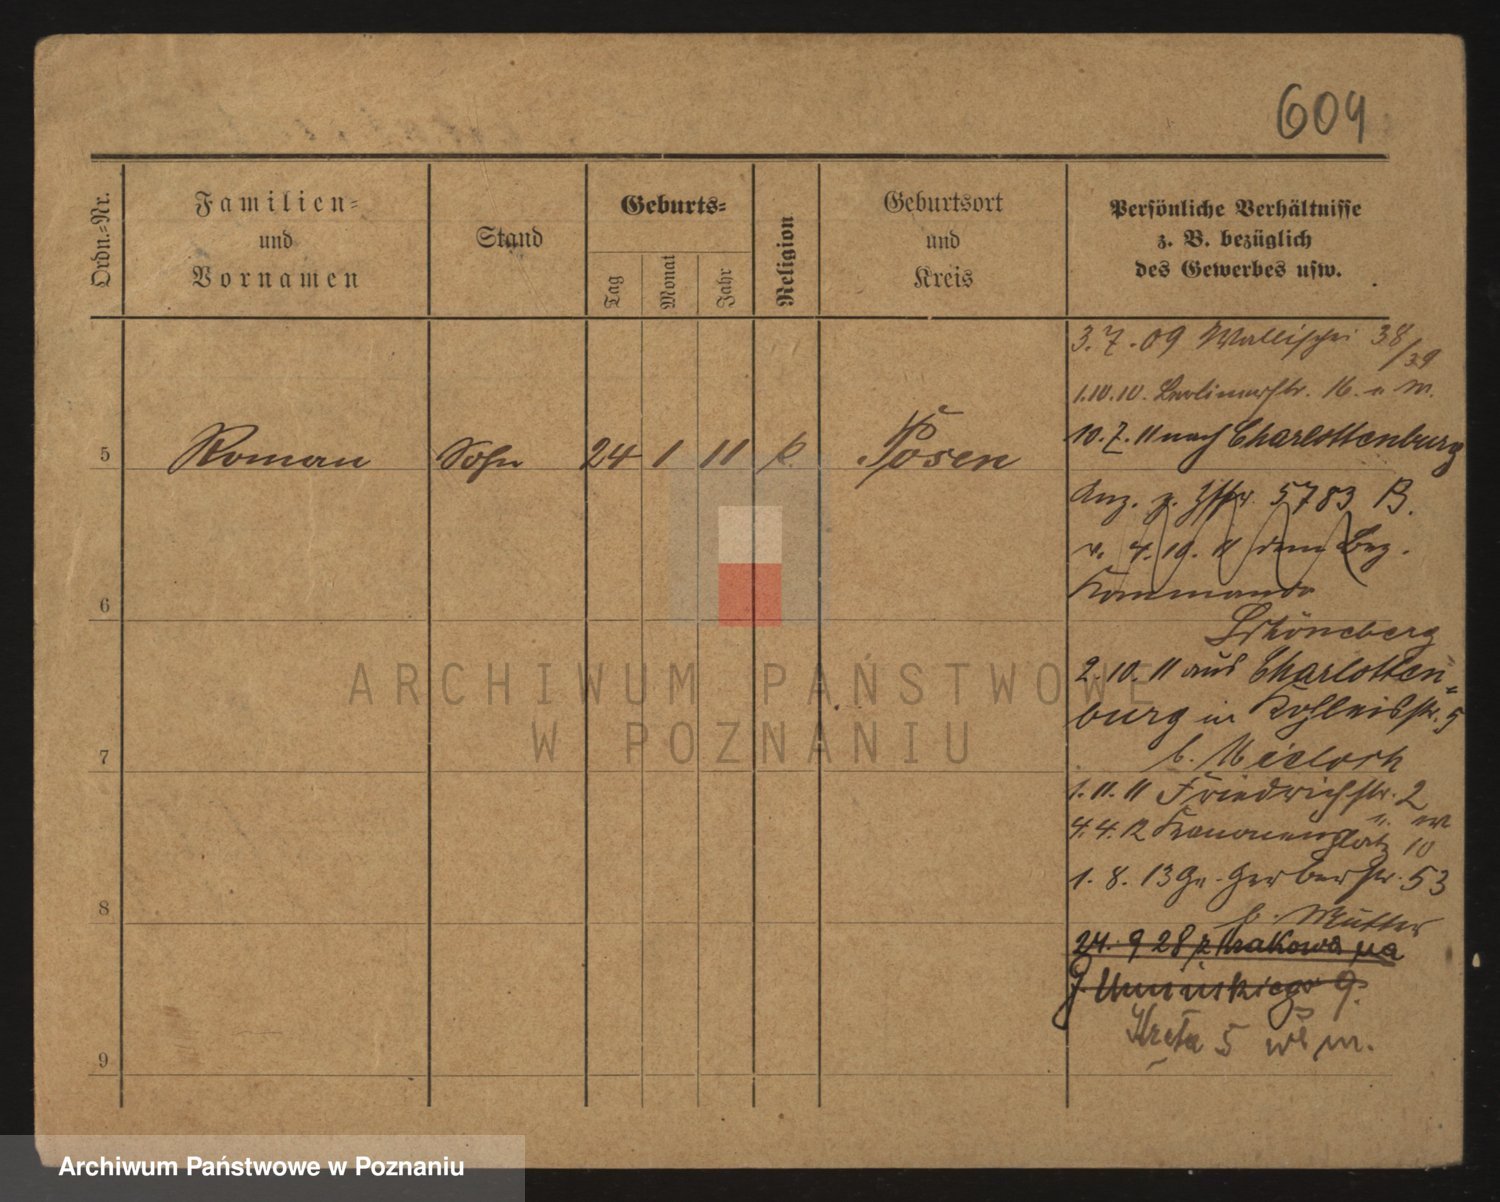 604
Ordn.-Nr.
Familien-
und
Vornamen
Stand
Geburts-
Tag
Monat
Jahr
Religion
Geburtsort
und
Kreis
Persönliche Verhältnisse
z. B. bezüglich
des Gewerbes usw.
5
Roman Sohn 24 1 11 k. Posen
3.7.09 Wallischei 38/39
1.10.10. Berlinerstr. 16. u M.
10.7.11 nach Charlottenburg
Anz. z. 5783 B.
v. 4.10.11 dem Bez.
Kommando
Schöneberg
2.10.11 aus Charlotten-
burg in Kohleisstr. 5
b. Mieloch
1.11.11 Friedrichstr. 2
4.4.12 Kanonenplatz 10
1.8.13 Gr. Gerberstr. 53
b. Mutter
24.9 28 z Krakowa na
J. Umińskiego 9.
Kręta 5 m.
6
7
8
9
ARCHIWUM PAŃSTWOWE
W POZNANIU
Archiwum Państwowe w Poznaniu